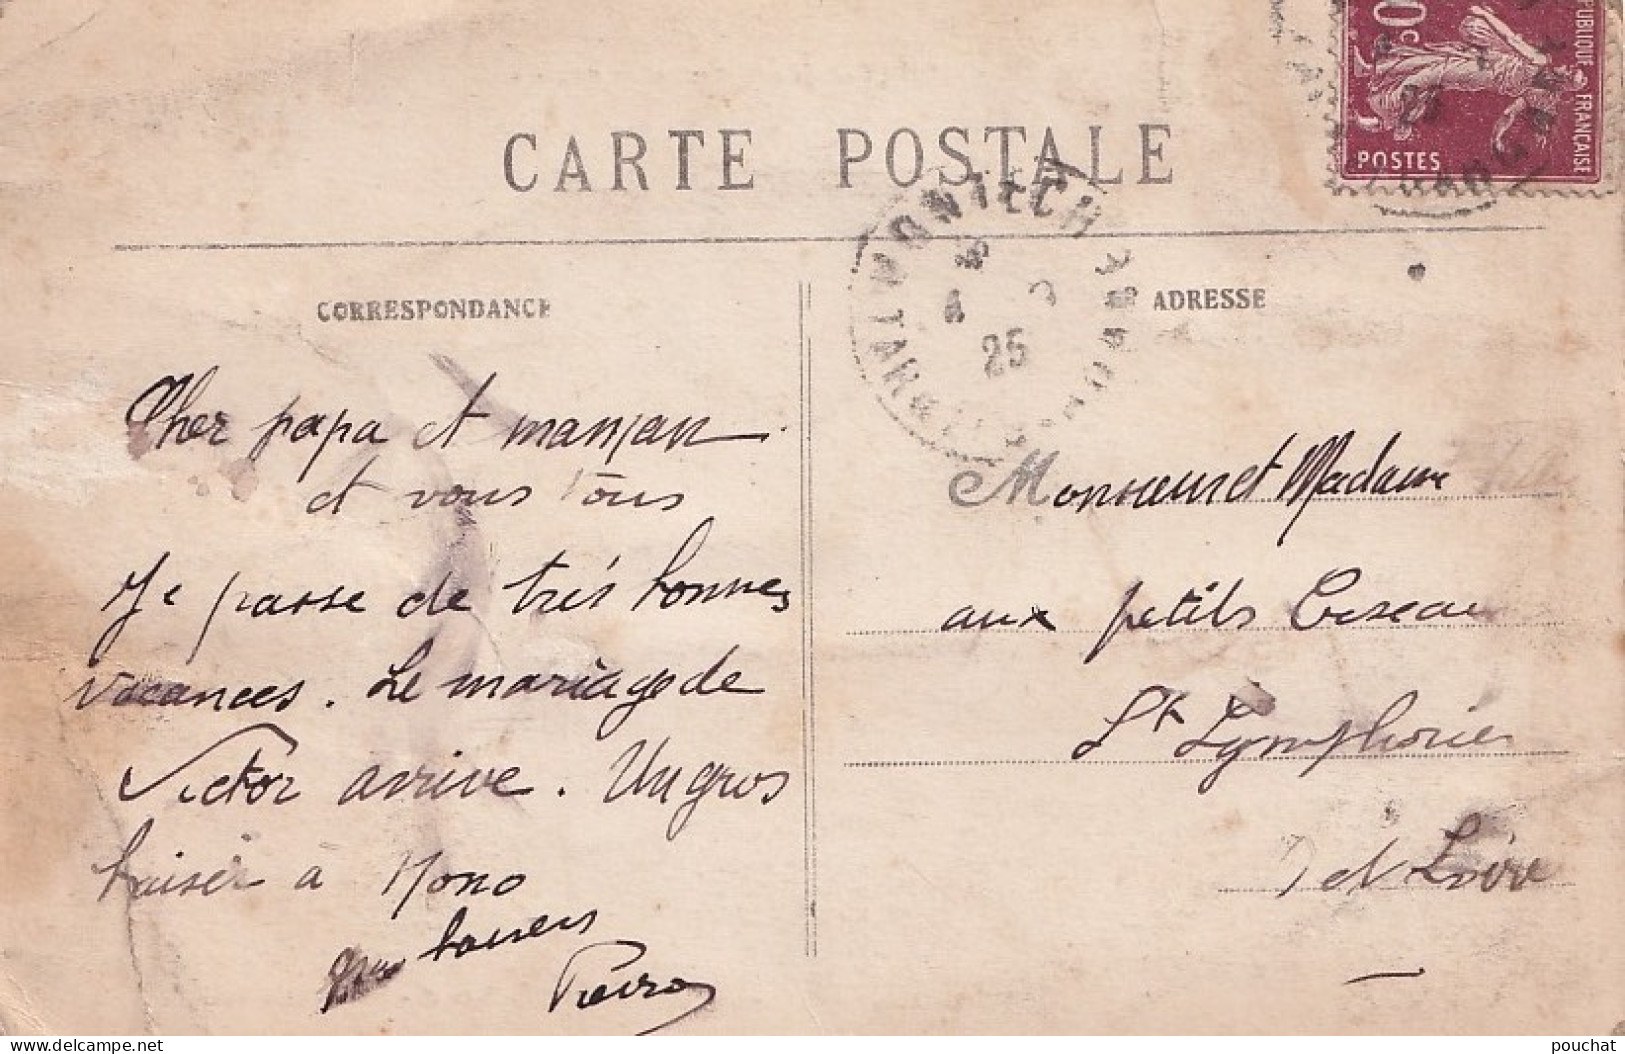 CARTE POSTALE
CORRESPONDANCE
Cher papa et maman
et vous tous
Je passe de très bonnes
vacances. Le mariage de
Victor arrive. Un gros
baiser à Nono
baisers
Pierre
0c
RÉPUBLIQUE FRANÇAISE
POSTES
MONTECH
25
ADRESSE
Monsieur et Madame
aux petits Oiseau
St Symphorien
I et Loire
pouchat
www.delcampe.net